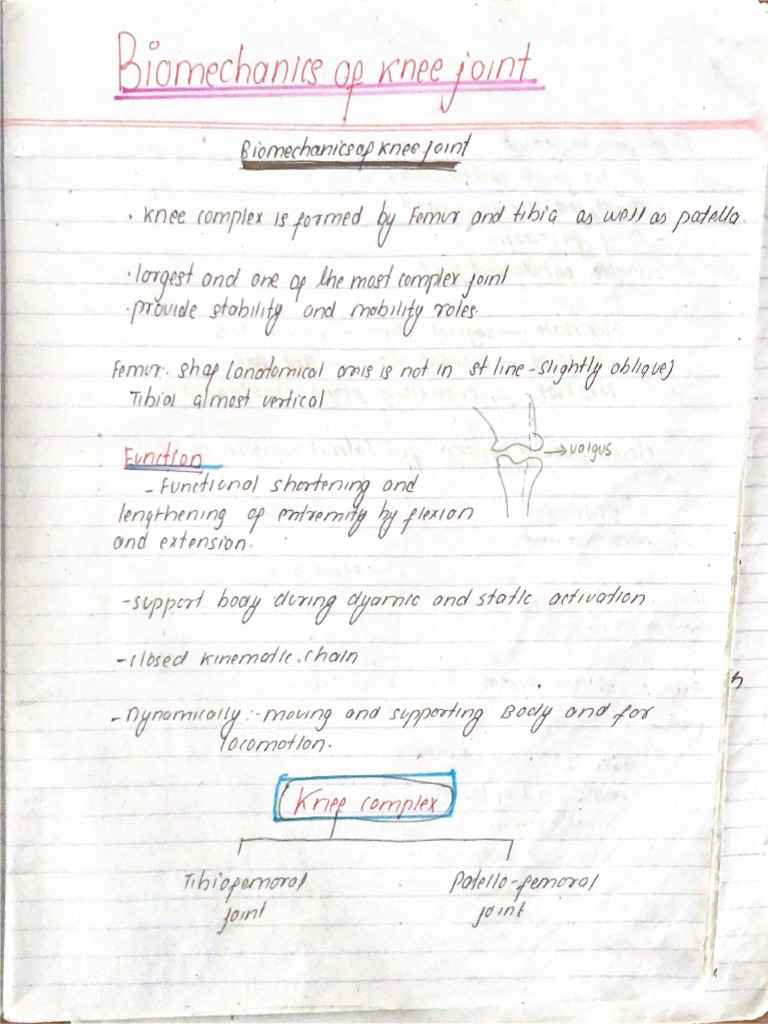 Biomechanics of knee joint
Biomechanics of knee joint
. Knee complex is formed by Femur and tibia as well as patella.
. largest and one of the most complex joint
. provide stability and mobility roles.
Femur:- shaf (anatomical axis is not in st line - slightly oblique)
Tibial almost vertical
→ valgus
Function
- Functional shortening and
lengthening of extremity by flexion
and extension.
- support body during dyamic and static activation
- closed kinematic chain
- Dynamically:- moving and supporting Body and for
locomotion.
Knee complex
Tibiofemoral
joint
Patello-femoral
joint